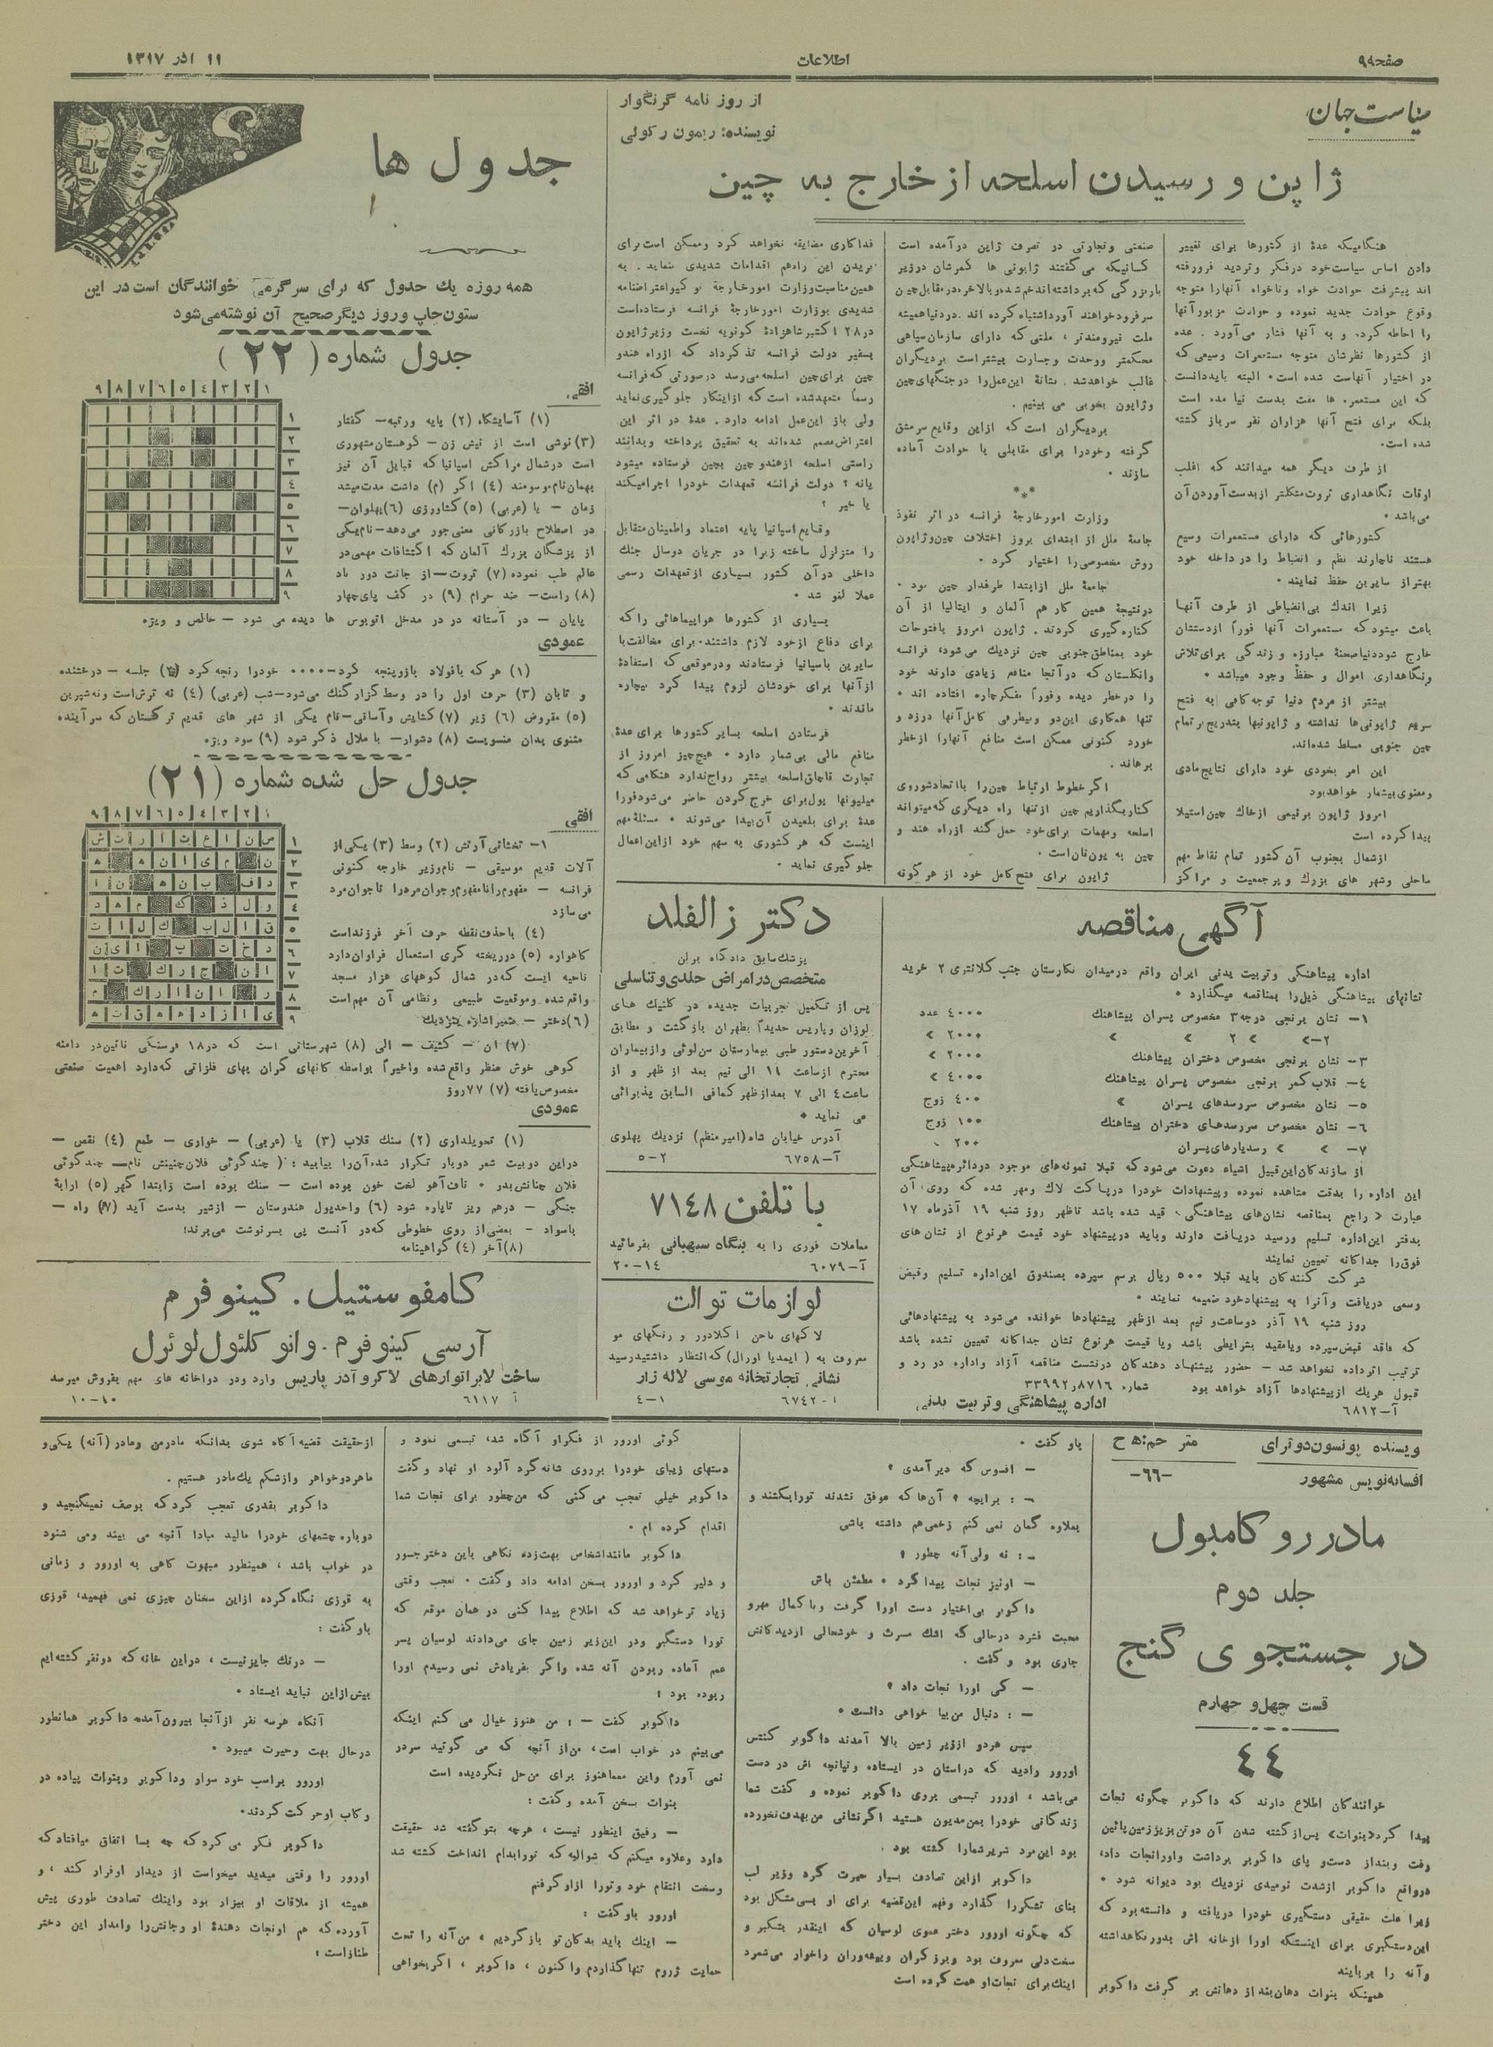 صفحه ۹۹
اطلاعات
۱۱ آذر ۱۳۱۷
سیاست جهان
از روز نامه گرنگوار
نویسنده: ریمون رکولی
ژاپن و رسیدن اسلحه از خارج به چین
هنگامیکه عدهٔ از کشورها برای تغییر
دادن اساس سیاست خود در فکر و تردید فرورفته
اند پیشرفت حوادث خواه و ناخواه آنها را متوجه
وقوع حوادث جدید نموده و حوادث مزبور آنها
را احاطه کرده و به آنها فشار می‌آورد. عده
از کشورها نظرشان متوجه مستعمرات وسیعی که
در اختیار آنهاست شده است. البته باید دانست
که این مستعمره ها مفت بدست نیامده است
بلکه برای فتح آنها هزاران نفر سرباز کشته
شده است.
از طرف دیگر همه میدانند که اغلب
اوقات نگاهداری ثروت مشکلتر از بدست آوردن آن
می‌باشد.
کشورهائی که دارای مستعمرات وسیع
هستند ناچارند نظم و انضباط را در داخله خود
بهتر از سایرین حفظ نمایند.
زیرا اندک بی‌انضباطی از طرف آنها
باعث میشود که مستعمرات آنها فوراً از دستشان
خارج شود دنیا صحنهٔ مبارزه و زندگی برای تلاش
و نگاهداری اموال و حفظ وجود میباشد.
بیشتر از مردم دنیا توجه کافی به فتح
سریع ژاپونی‌ها نداشته و ژاپونیها بتدریج بر تمام
چین جنوبی مسلط شده‌اند.
این امر بخودی خود دارای نتایج مادی
و معنوی بیشمار خواهد بود
امروز ژاپون بر نیمی از خاک چین استیلا
پیدا کرده است
از شمال بجنوب آن کشور تمام نقاط مهم
ساحلی و شهر های بزرگ و پر جمعیت و مراکز
صنعتی و تجارتی در تصرف ژاپن در آمده است
کسانیکه می‌گفتند ژاپونی ها کمرشان در زیر
بار بزرگی که برداشته‌اند خم شده و بالاخره در مقابل چین
سر فرود خواهند آورد اشتباه کرده اند. در دنیا همیشه
ملت نیرومندتر، ملتی که دارای سازمان سپاهی
محکمتر و وحدت و جسارت بیشتر است بر دیگران
غالب خواهد شد. نشانهٔ این عمل را در جنگهای چین
و ژاپون بخوبی می بینیم.
بر دیگران است که از این وقایع سرمشق
گرفته و خود را برای مقابلی با حوادث آماده
سازند.
***
وزارت امور خارجهٔ فرانسه در اثر نفوذ
جامعهٔ ملل از ابتدای بروز اختلاف چین و ژاپون
روش مخصوصی را اختیار کرد.
جامعهٔ ملل از ابتدا طرفدار چین بود.
در نتیجهٔ همین کار هم آلمان و ایتالیا از آن
کناره گیری کردند. ژاپون امروز با فتوحات
خود بمناطق جنوبی چین نزدیک می‌شود، فرانسه
و انگلستان که در آنجا منافع زیادی دارند خود
را در خطر دیده و فوراً بفکر چاره افتاده اند.
تنها همکاری این دو و بیطرفی کامل آنها در زد و
خورد کنونی ممکن است منافع آنها را از خطر
برهاند.
اگر خطوط ارتباط چین را با اتحاد شوروی
کنار بگذاریم چین از تنها راه دیگری که میتواند
اسلحه و مهمات برای خود حمل کند از راه هند و
چین به یون نان است.
ژاپون برای فتح کامل خود از هر گونه
فداکاری مضایقه نخواهد کرد و ممکن است برای
بریدن این راه هم اقدامات شدیدی بنماید. به
همین مناسبت وزارت امور خارجهٔ توکیو اعتراضنامه
شدیدی بوزارت امور خارجهٔ فرانسه فرستاده است
در ۲۸ اکتبر شاهزادهٔ کونویه نخست وزیر ژاپون
بسفیر دولت فرانسه تذکر داد که از راه هندو
چین برای چین اسلحه می‌رسد در صورتی که فرانسه
رسماً متعهد شده است که از اینکار جلوگیری نماید
ولی باز این عمل ادامه دارد. عدهٔ در اثر این
اعتراض مصمم شده‌اند به تحقیق پرداخته و بدانند
راستی اسلحه از هندوچین بچین فرستاده میشود
یا نه؟ دولت فرانسه تعهدات خود را اجرا میکند
یا خیر؟
وقایع اسپانیا پایه اعتماد و اطمینان متقابل
را متزلزل ساخته زیرا در جریان دو سال جنگ
داخلی در آن کشور بسیاری از تعهدات رسمی
عملا لغو شد.
بسیاری از کشورها هواپیماهائی را که
برای دفاع از خود لازم داشتند، برای مخالفت با
سایرین باسپانیا فرستادند و در موقعی که استفادهٔ
از آنها برای خودشان لزوم پیدا کرد بیچاره
ماندند.
فرستادن اسلحه بسایر کشورها برای عدهٔ
منافع مالی بی‌شمار دارد. هیچ چیز امروز از
تجارت قاچاق اسلحه بیشتر رواج ندارد هنگامی که
میلیونها پول برای خرج کردن حاضر می‌شود فورا
عدهٔ برای بلعیدن آن پیدا می‌شوند. مسئلهٔ مهم
اینست که هر کشوری به سهم خود از این اعمال
جلوگیری نماید.
جدول ها
همه روزه یک جدول که برای سرگرمی خوانندگان است در این
ستون چاپ و روز دیگر صحیح آن نوشته می‌شود
جدول شماره (۲۲)
۱ ۲ ۳ ٤ ٥ ٦ ۷ ۸ ۹
افقی
(۱) آسایشگاه (۲) پایه و رتبه - گفتار
(۳) نوشی است از نیش زن - کوهستان مشهوری
است در شمال مراکش اسپانیا که قبایل آن نیز
بهمان نام موسومند (٤) اگر (م) داشت مدت میشد
زمان - یا (عربی) (٥) کشاورزی (٦) پهلوان -
در اصطلاح بازرگانی معنی جور می‌دهد - نام یکی
از پزشگان بزرگ آلمان که اکتشافات مهمی در
عالم طب نموده (۷) ثروت - از جانت دور باد
(۸) راست - ضد حرام (۹) در کف پای چهار
پایان - در آستانه در در مدخل اتوبوس ها دیده می شود - خالص و ویژه
عمودی
(۱) هر که با فولاد بازو پنجه کرد - ۰۰۰۰ خود را رنجه کرد (۲) جلسه - درخشنده
و تابان (۳) حرف اول را در وسط گزار گنک می‌شود - شب (عربی) (٤) نه ترش است و نه شیرین
(٥) مقروض (٦) زیر (۷) گشایش و آسانی - نام یکی از شهر های قدیم ترکستان که سر آینده
مثنوی بدان منسوبست (۸) دشوار - با ملال ذکر شود (۹) سود ویژه
جدول حل شده شماره (۲۱)
۱ ۲ ۳ ٤ ٥ ٦ ۷ ۸ ۹
افقی
۱- تختائی آرتش (۲) وسط (۳) یکی از
آلات قدیم موسیقی - نام وزیر خارجه کنونی
فرانسه - مفهوم را نامفهوم و جوانمرد را ناجوانمرد
می سازد
(٤) با حذف نقطه حرف آخر فرزند است
گاهواره (٥) در ریخته گری استعمال فراوان دارد
ناحیه ایست که در شمال کوههای هزار مسجد
واقع شده و موقعیت طبیعی و نظامی آن مهم است
(٦) دختر - ضمیر اشاره بنزدیک
(۷) ان - کثیف - الی (۸) شهرستانی است که در ۱۸ فرسنگی نائین در دامنه
کوهی خوش منظر واقع شده و اخیراً بواسطه کانهای گران بهای فلزاتی که دارد اهمیت صنعتی
مخصوص یافته (۷) ۷۷ روز
عمودی
(۱) تحویلداری (۲) سنک قلاب (۳) یا (عربی) - خواری - طمع (٤) نقص -
در این دو بیت شعر دو بار تکرار شده، آن را بیابید: (چند گوئی فلان چنینش نام - چند گوئی
فلان چنانش پدر. ناف آهو لخت خون بوده است - سنک بوده است زابتدا گهر (٥) ارابهٔ
جنگی - درهم ریز تا پاره شود (٦) واحد پول هندوستان - از شیر بدست آید (۷) راه -
باسواد - بعضی از روی خطوطی که در آنست پی بسرنوشت می‌برند؛
(۸) آخر (٤) گواهینامه
کامفوستیل. کینو فرم
آرسی کینو فرم. وانو کلئول لوئرل
ساخت لابراتوارهای لاکروآ در پاریس وارد و در دواخانه های مهم بفروش میرسد
آ ٦۱۱۷
۱۰-۱۰
دکتر زالفلد
پزشک سابق دادگاه برلن
متخصص در امراض جلدی و تناسلی
پس از تکمیل تجربیات جدیده در کلنیک های
لوزان و پاریس جدیداً بطهران بازگشت و مطابق
آخرین دستور طبی بیمارستان سن لوئی و از بیماران
محترم از ساعت ۱۱ الی نیم بعد از ظهر و از
ساعت ٤ الی ۷ بعد از ظهر کمافی السابق پذیرائی
می نماید.
آدرس خیابان شاه (امیر منظم) نزدیک پهلوی
آ-٦۷٥۸
۲-٥
با تلفن ۷۱٤۸
معاملات فوری را به بنگاه سبهبانی بفرمائید
آ-٦۰۷۹
۱٤-۲۰
لوازمات توالت
لاکهای ناخن اکلادور و رنگهای مو
معروف به (ایمدیا اورال) که انتظار داشتید رسید
نشانی تجارتخانه موسی لاله زار
آ-٦۷٤۲
۱-٤
آگهی مناقصه
اداره پیشاهنگی و تربیت بدنی ایران واقع در میدان نگارستان جنب کلانتری ۲ خرید
نشانهای پیشاهنگی ذیل را بمناقصه میگذارد.
۱- نشان برنجی درجه ۳ مخصوص پسران پیشاهنک ٤۰۰۰ عدد
۲- » » ۲ » » ۲۰۰۰ »
۳- نشان برنجی مخصوص دختران پیشاهنک ۲۰۰۰ »
٤- قلاب کمر برنجی مخصوص پسران پیشاهنک ٤۰۰۰ »
٥- نشان مخصوص سررسدهای پسران » ٤۰۰ زوج
٦- نشان مخصوص سررسدهای دختران پیشاهنک ۱۰۰ زوج
۷- » » رسدیارهای پسران ۲۰۰ »
از سازندگان این قبیل اشیاء دعوت می‌شود که قبلا نمونه‌های موجود در دائره پیشاهنگی
این اداره را بدقت مشاهده نموده و پیشنهادات خود را در پاکت لاک و مهر شده که روی آن
عبارت « راجع بمناقصه نشان‌های پیشاهنگی » قید شده باشد تا ظهر روز شنبه ۱۹ آذر ماه ۱۷
بدفتر این اداره تسلیم و رسید دریافت دارند و باید در پیشنهاد خود قیمت هر نوع از نشان های
فوق را جداگانه تعیین نمایند
شرکت کنندگان باید قبلا ٥۰۰ ریال برسم سپرده بصندوق این اداره تسلیم و قبض
رسمی دریافت و آنرا به پیشنهاد خود ضمیمه نمایند.
روز شنبه ۱۹ آذر دو ساعت و نیم بعد از ظهر پیشنهادها خوانده می‌شود به پیشنهادهائی
که فاقد قبض سپرده و یا مقید بشرایطی باشد و یا قیمت هر نوع نشان جداگانه تعیین نشده باشد
ترتیب اثر داده نخواهد شد - حضور پیشنهاد دهندگان در نشست مناقصه آزاد و اداره در رد و
قبول هر یک از پیشنهادها آزاد خواهد بود شماره ۳۳۹۹۲ر۸۷۱٦
آ-٦۸۱۲
اداره پیشاهنگی و تربیت بدنی
نویسنده پونسون دوترای
افسانه نویس مشهور
-٦٦-
مادر روکامبول
جلد دوم
در جستجوی گنج
قسمت چهل و چهارم
٤٤
خوانندگان اطلاع دارند که داکوبر چگونه نجات
پیدا کرد «بنوات» پس از کشته شدن آن دو تن بزیر زمین پائین
رفت و بند از دست و پای داکوبر برداشت و او را نجات داد،
در واقع داکوبر از شدت نومیدی نزدیک بود دیوانه شود.
زیرا علت حقیقی دستگیری خود را دریافته و دانسته بود که
این دستگیری برای اینستکه او را از خانه اش بدور نگاهداشته
و آنه را بربایند
همینکه بنوات دهان بند از دهانش بر گرفت داکوبر
باو گفت.
- افسوس که دیر آمدی؟
- : برایچه؟ آن‌ها که موفق نشدند تو را بکشند و
بعلاوه گمان نمی کنم زخمی هم داشته باشی
- : نه ولی آنه چطور؟
- او نیز نجات پیدا کرد. مطمئن باش
داکوبر بی‌اختیار دست او را گرفت و با کمال مهر و
محبت فشرد در حالی که اشک مسرت و خوشحالی از دیدگانش
جاری بود و گفت.
- کی او را نجات داد؟
- : دنبال من بیا خواهی دانست.
سپس هر دو از زیر زمین بالا آمدند داکوبر کنتس
اورور را دید که در استان در ایستاده و تپانچه اش در دست
می‌باشد، اورور تبسمی بروی داکوبر نموده و گفت شما
زندگانی خود را بمن مدیون هستید اگر نشانی من بهدف نخورده
بود این مرد شریر شما را کشته بود.
داکوبر از این تصادف بسیار حیرت کرد و زیر لب
بنای تشکر را گذارد و فهم این قضیه برای او بسی مشکل بود
که چگونه اورور دختر عموی لوسیان که اینقدر بتکبر و
سخت دلی معروف بود و برزگران و پیشه‌وران را خوار می‌شمرد
اینک برای نجات او همت کرده است
گوئی اورور از فکر او آگاه شد، تبسمی نمود و
دستهای زیبای خود را بر روی شانه گرد آلود او نهاد و گفت
داکوبر خیلی تعجب می‌کنی که من چطور برای نجات شما
اقدام کرده ام.
داکوبر مانند اشخاص بهت زده نگاهی باین دختر جسور
و دلیر کرد و اورور بسخن ادامه داد و گفت. تعجب وقتی
زیاد تر خواهد شد که اطلاع پیدا کنی در همان موقع که
تو را دستگیر و در این زیر زمین جای می‌دادند لوسیان پسر
عمم آماده ربودن آنه شده و اگر بفریادش نمی رسیدم او را
ربوده بود؛
داکوبر گفت - : من هنوز خیال می کنم اینکه
می‌بینم در خواب است، من از آنچه که می گوئید سر در
نمی آورم و این معما هنوز برای من حل نگردیده است
بنوات بسخن آمده و گفت:
- رفیق اینطور نیست، هر چه بتو گفته شد حقیقت
دارد و علاوه میکنم که شوالیه که تو را بدام انداخت کشته شد
و سخت انتقام خود و تو را از او گرفتم
اورور باو گفت:
- اینک باید بدکان تو باز گردیم، من آنه را تحت
حمایت ژروم تنها گذاردم و اکنون، داکوبر، اگر بخواهی
از حقیقت قضیه آگاه شوی بدانکه مادر من و مادر (آنه) یکی و
ما هر دو خواهر و از شکم یک مادر هستیم.
داکوبر بقدری تعجب کرد که بوصف نمیگنجید و
دوباره چشمهای خود را مالید مبادا آنچه می بیند و می شنود
در خواب باشد، همینطور مبهوت گاهی به اورور و زمانی
به قوزی نگاه کرده از این سخنان چیزی نمی فهمید، قوزی
باو گفت:
- درنک جایز نیست، در این خانه که دو نفر کشته‌ایم
بیش از این نباید ایستاد.
آنگاه هر سه نفر از آنجا بیرون آمده داکوبر همانطور
در حال بهت و حیرت میبود.
اورور بر اسب خود سوار و داکوبر و بنوات پیاده در
رکاب او حرکت کردند.
داکوبر فکر می کرد که چه بسا اتفاق میافتاد که
اورور را وقتی میدید میخواست از دیدار او فرار کند، و
همیشه از ملاقات او بیزار بود و اینک تصادف طوری پیش
آورده که هم او نجات دهندهٔ او و جانش را وامدار این دختر
طناز است؛